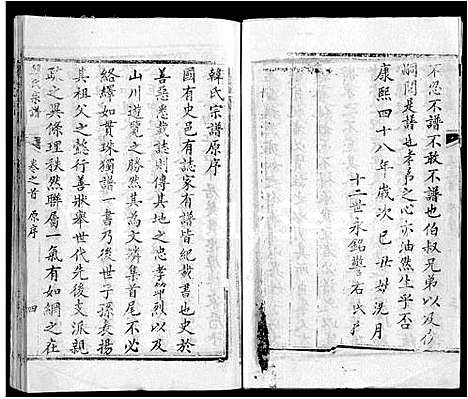 不忍不譜不敢不譜也伯叔兄弟以及
嗣閱是譜也孝弟之心亦油然生乎否
康熙四十八年歲次己丑荷月
十二世永銘
韓氏宗譜原序
國有史邑有誌家有譜皆紀載書也史於
善惡悉載誌則傳其地之忠孝節烈以及
山川遊覽之勝然其為文磷集首尾不必
絡繹如貫珠獨譜一書乃後世子孫表揚
其祖父之懿行善狀舉世代先後支派親
疏之異條理秩然聯屬一氣有如網之在
韓氏宗譜 卷之首 原序 四